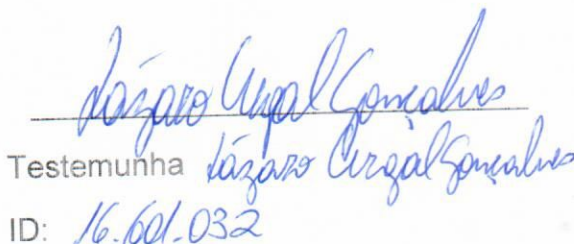 Lázaro Urgal Gonçalves
Testemunha Lázaro Urgal Gonçalves
ID: 16.601.032